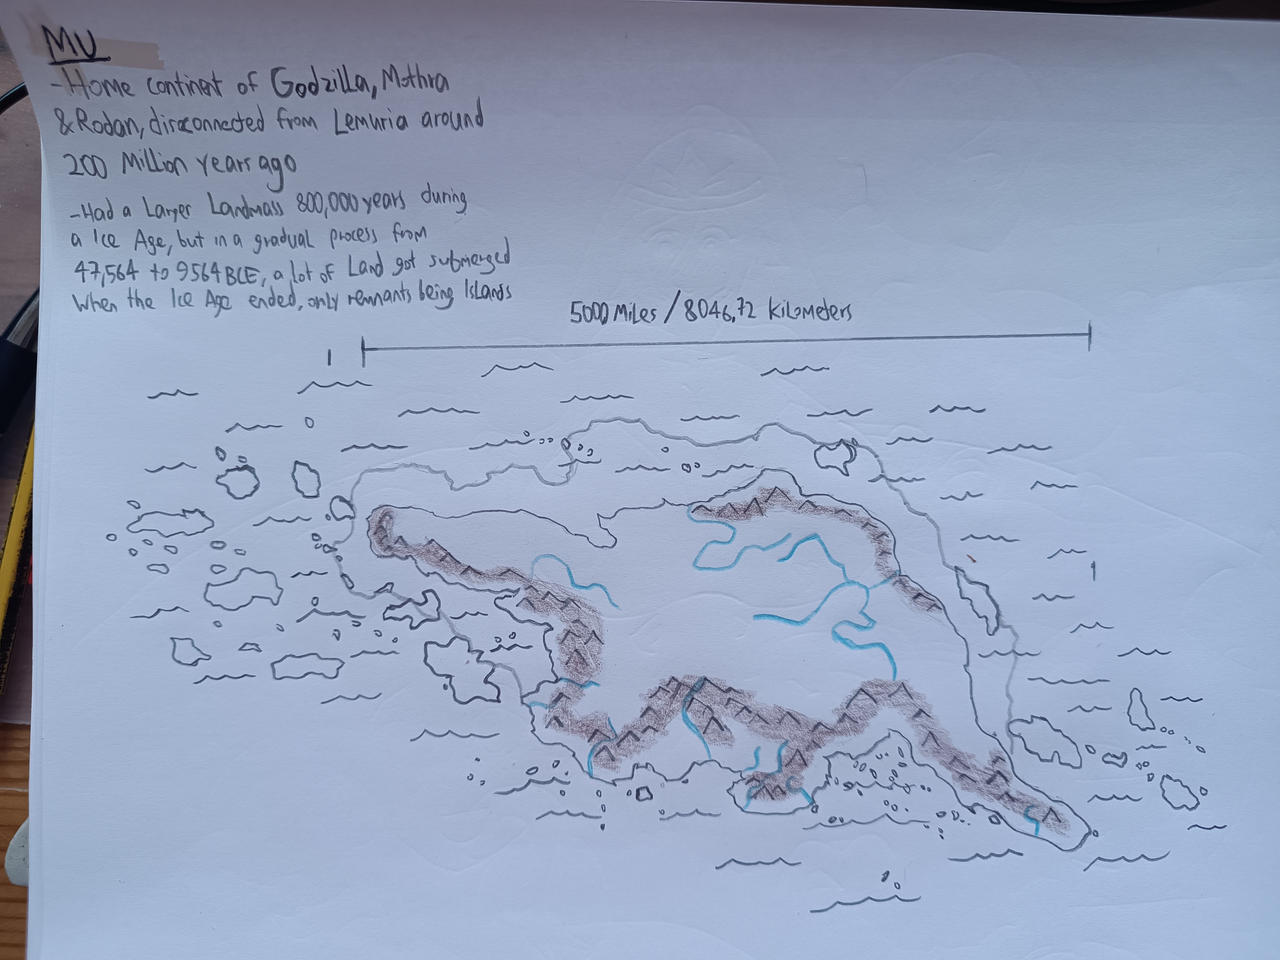 MU
- Home continent of Godzilla, Mothra
& Rodan, disconnected from Lemuria around
200 Million years ago
- Had a Larger Landmass 800,000 years during
a Ice Age, but in a gradual process from
47,564 to 9564 BCE, a lot of Land got submerged
when the Ice Age ended, only remnants being Islands
5000 Miles / 8046,72 kilometers